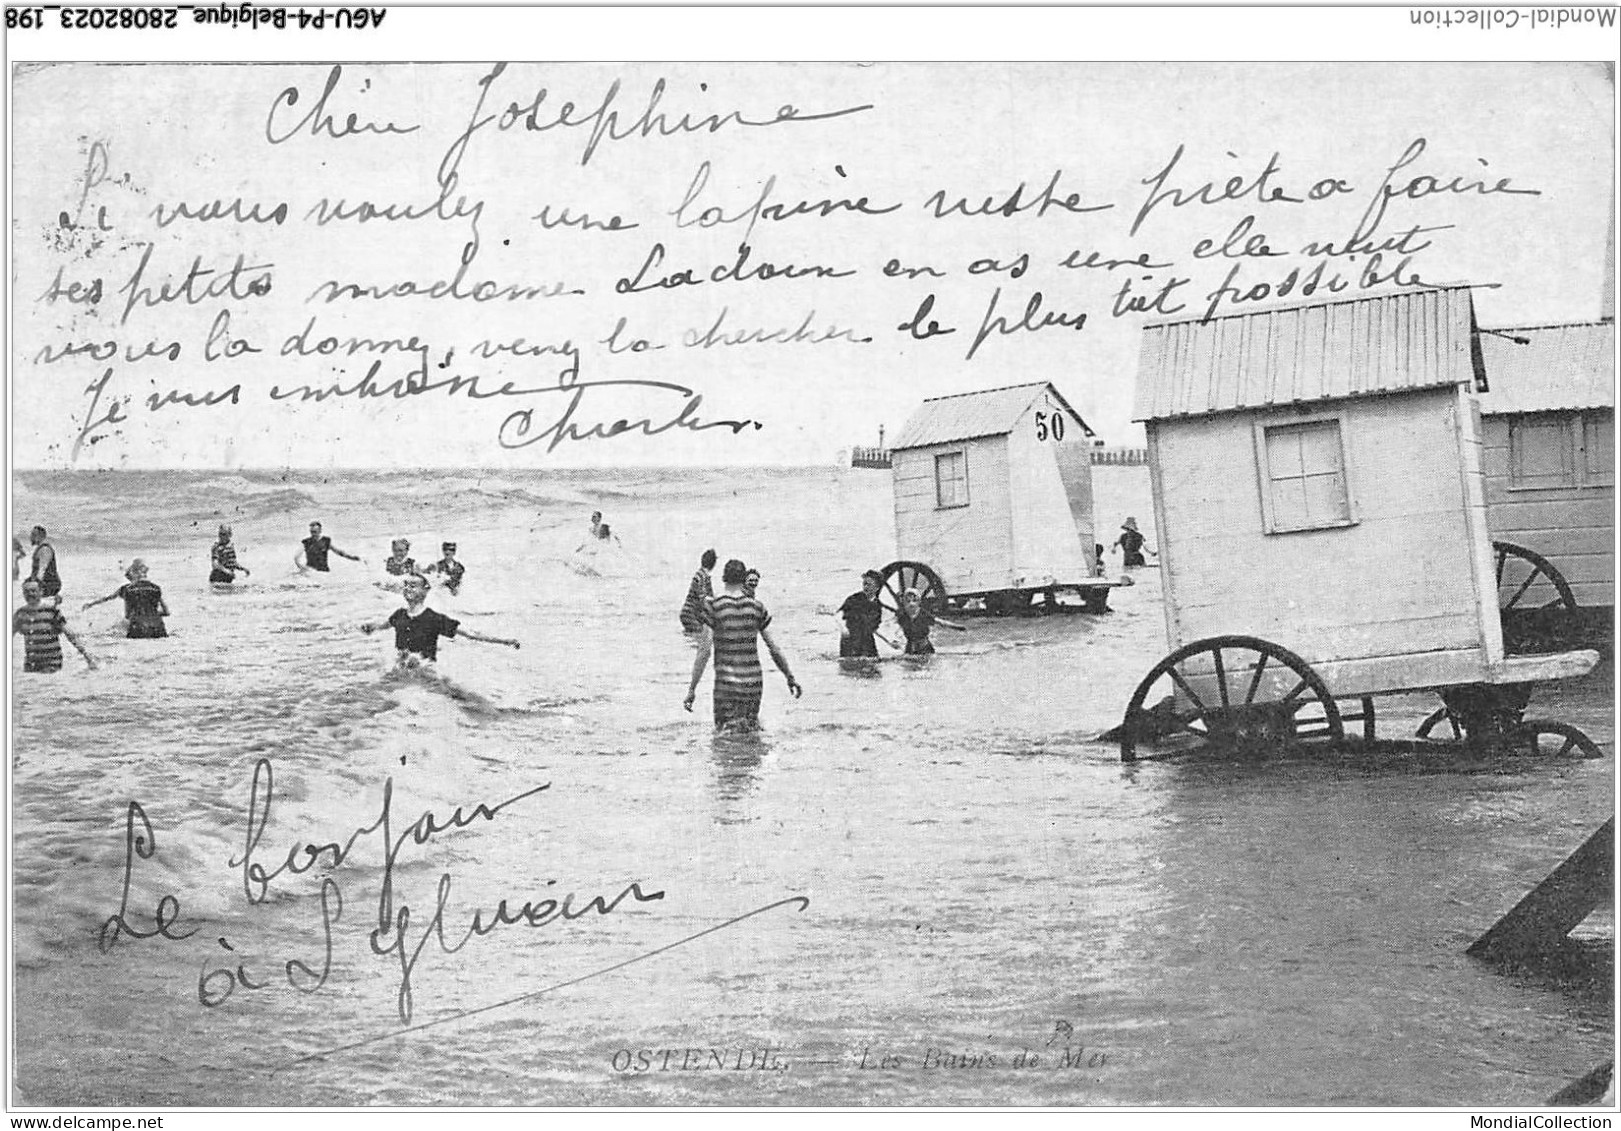 AGU-P4-Belgique_28082023_198
Mondial-Collection
Chère Josephine
Si vous voulez une lapine reste prète a faire
ses petits madame Ladoux en as une elle veut
vous la donnez, venez la chercher le plus tôt possible
Je vous embrasse
Charles.
50
Le bonjour
à Sylvain
OSTENDE. — Les Bains de Mer
MondialCollection